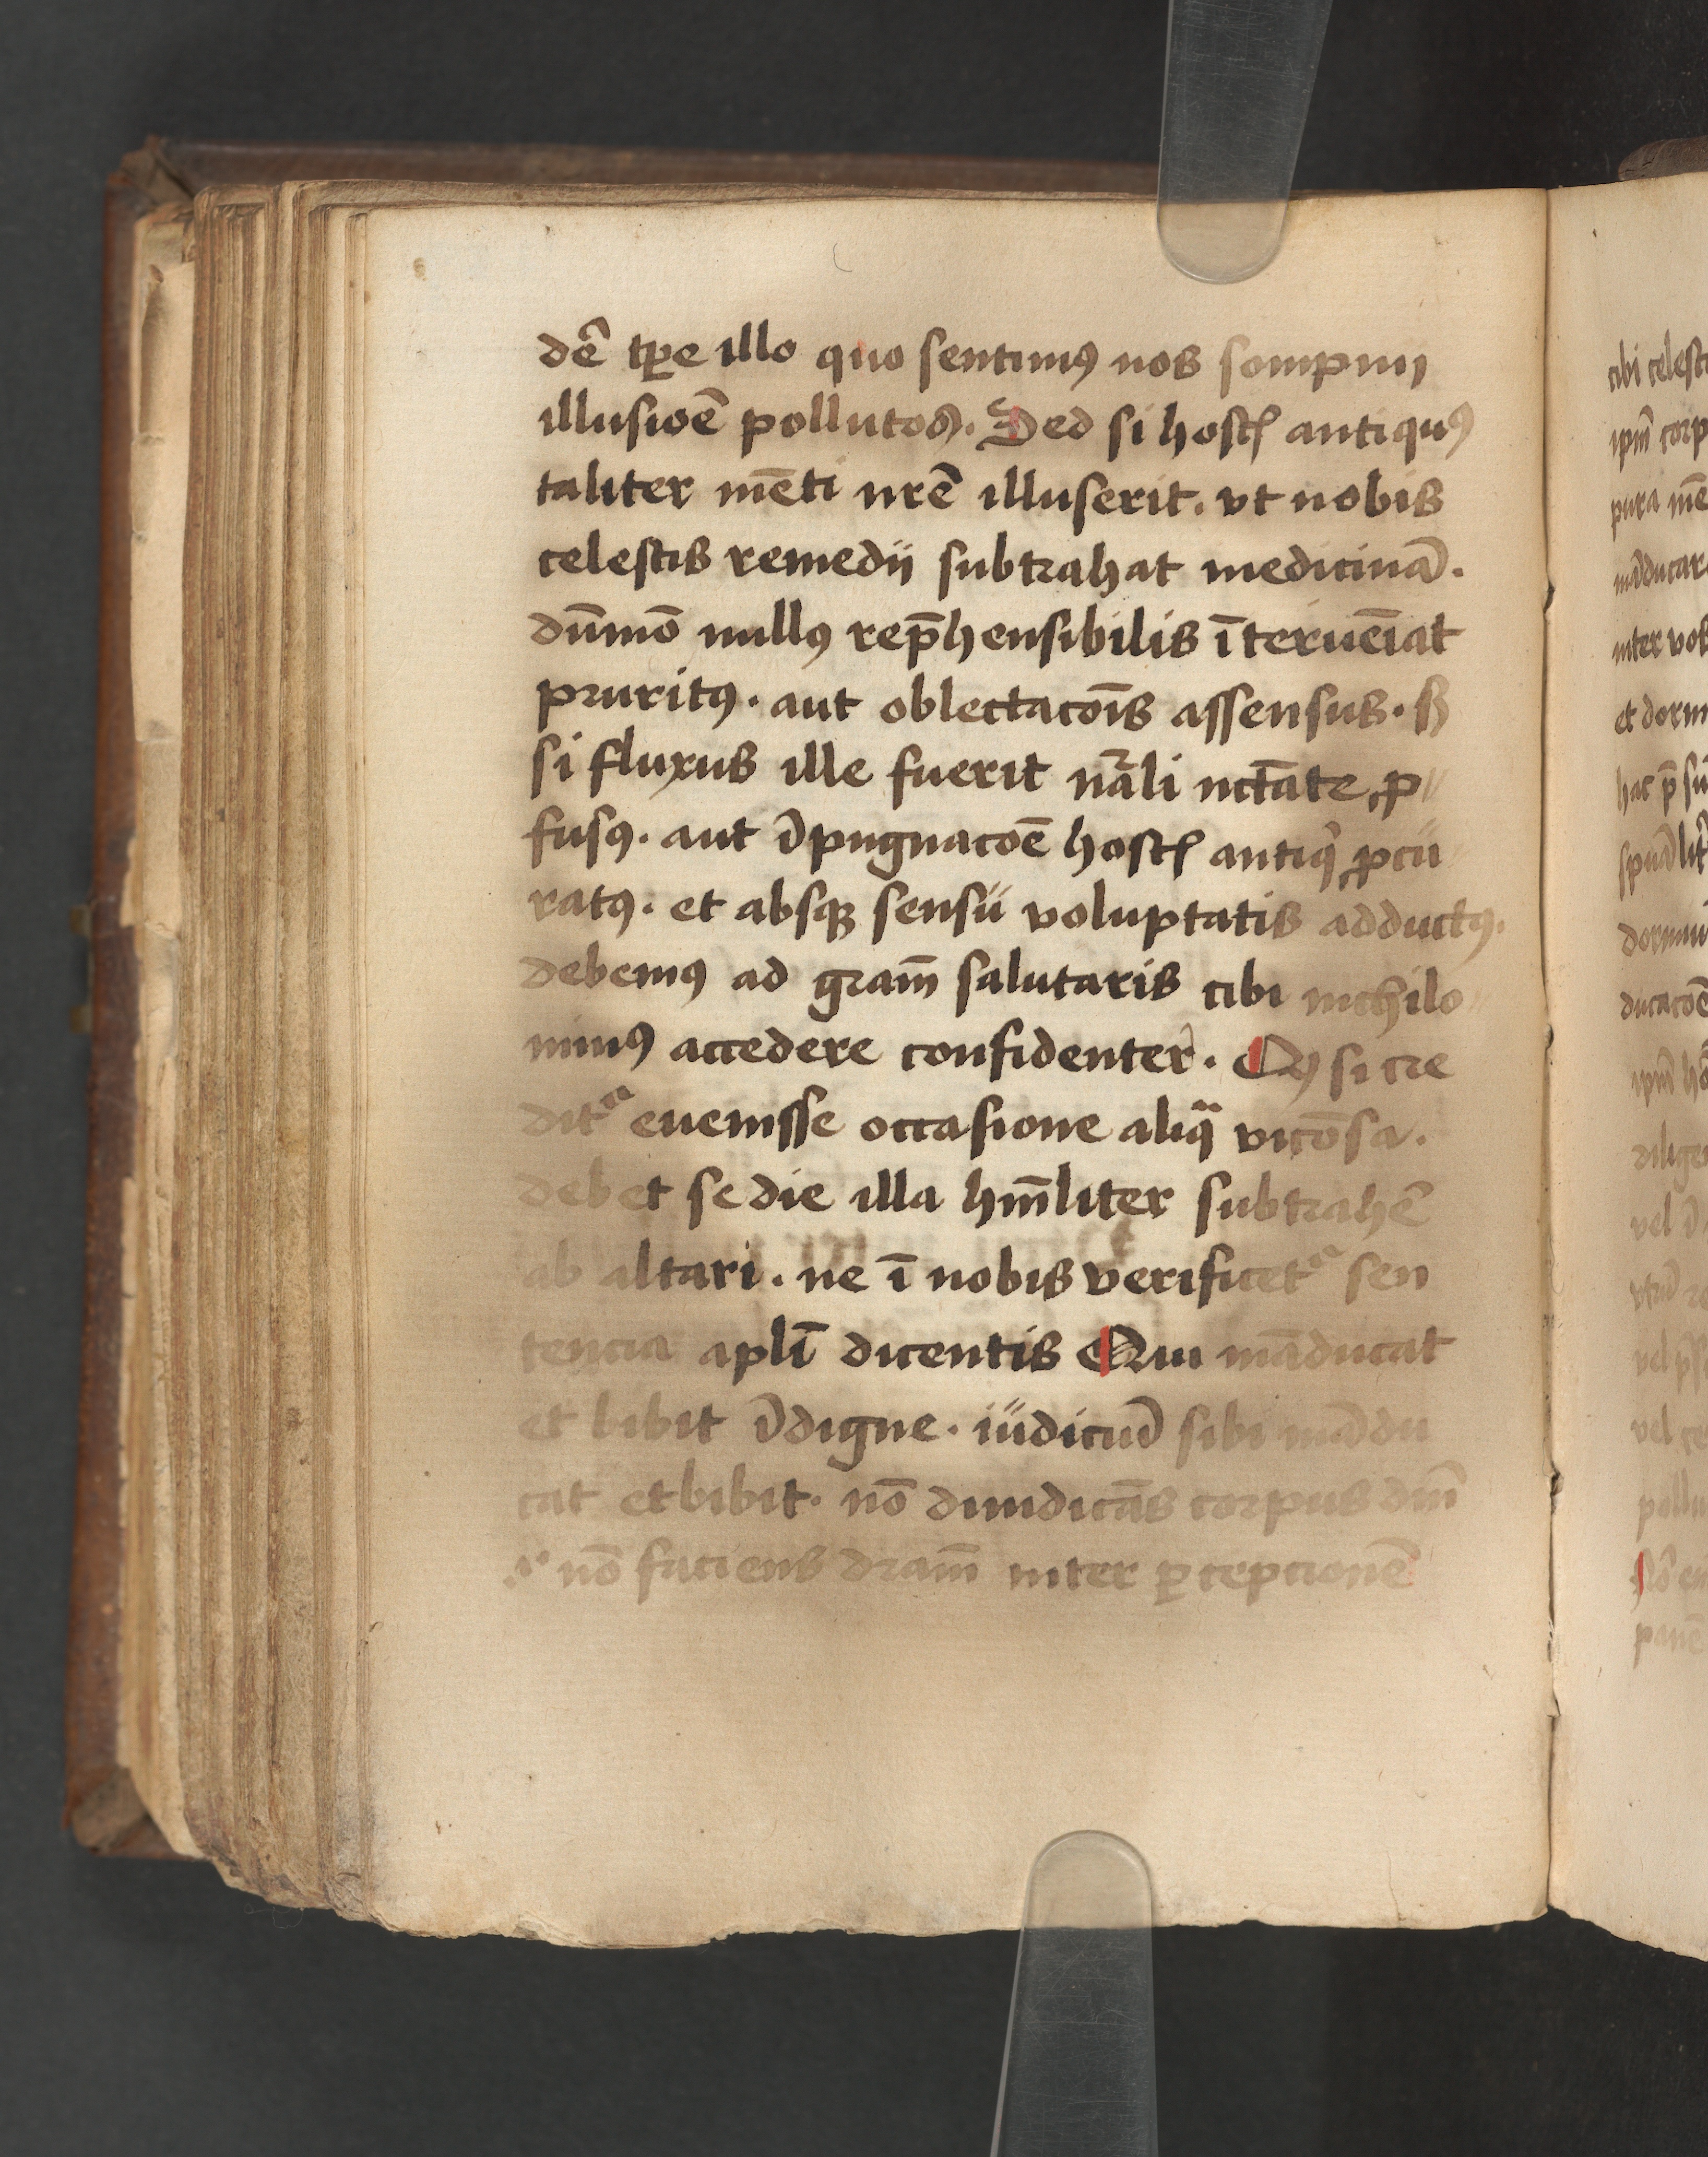 dē tꝑe illo quo sentimꝯ nos sompnij
illusioē pollutos. Sed si hostꝭ antiquꝯ
taliter mēti nrē illuserit. vt nobis
celestis remedii subtrahat medicinā.
dūmō nullꝯ rep̄hensibilis īterueīat
pruritꝯ. aut oblectacōis assensus. sꝫ
si fluxus ille fuerit nāli nctāte, ꝓ//
fusꝯ. aut īpugnacoē hostꝭ antiqͥ ꝓcu
ratꝯ. et absqꝫ sensu voluptatis adductꝯ.
debemꝯ ad gram̄ salutaris cibi nichilo//
minꝯ accedere confidenter. Qꝫ si cre
ditᷓ euenisse occasione aliqᷓ vicōsa.
debet se die illa hūiliter subtrahē
ab altari. ne ī nobis verificetᷓ sen
tencia apli̅ dicentis Qui māducat
et bibit īdigne. iudiciū sibi mādu
cat et bibit. nō diiudicās corpus dni̅
.i. nō faciens dram̄ inter ꝑcepcionē
cibi celest
ipm̄ corp
pura mē
māducar
inter vol
et dorm
hac p̄ su
spūalit̄
dormiu
ducacoē
ipm̄ ho
dilige
vel ī
vel
vel ce
pollu
Nō en
panē